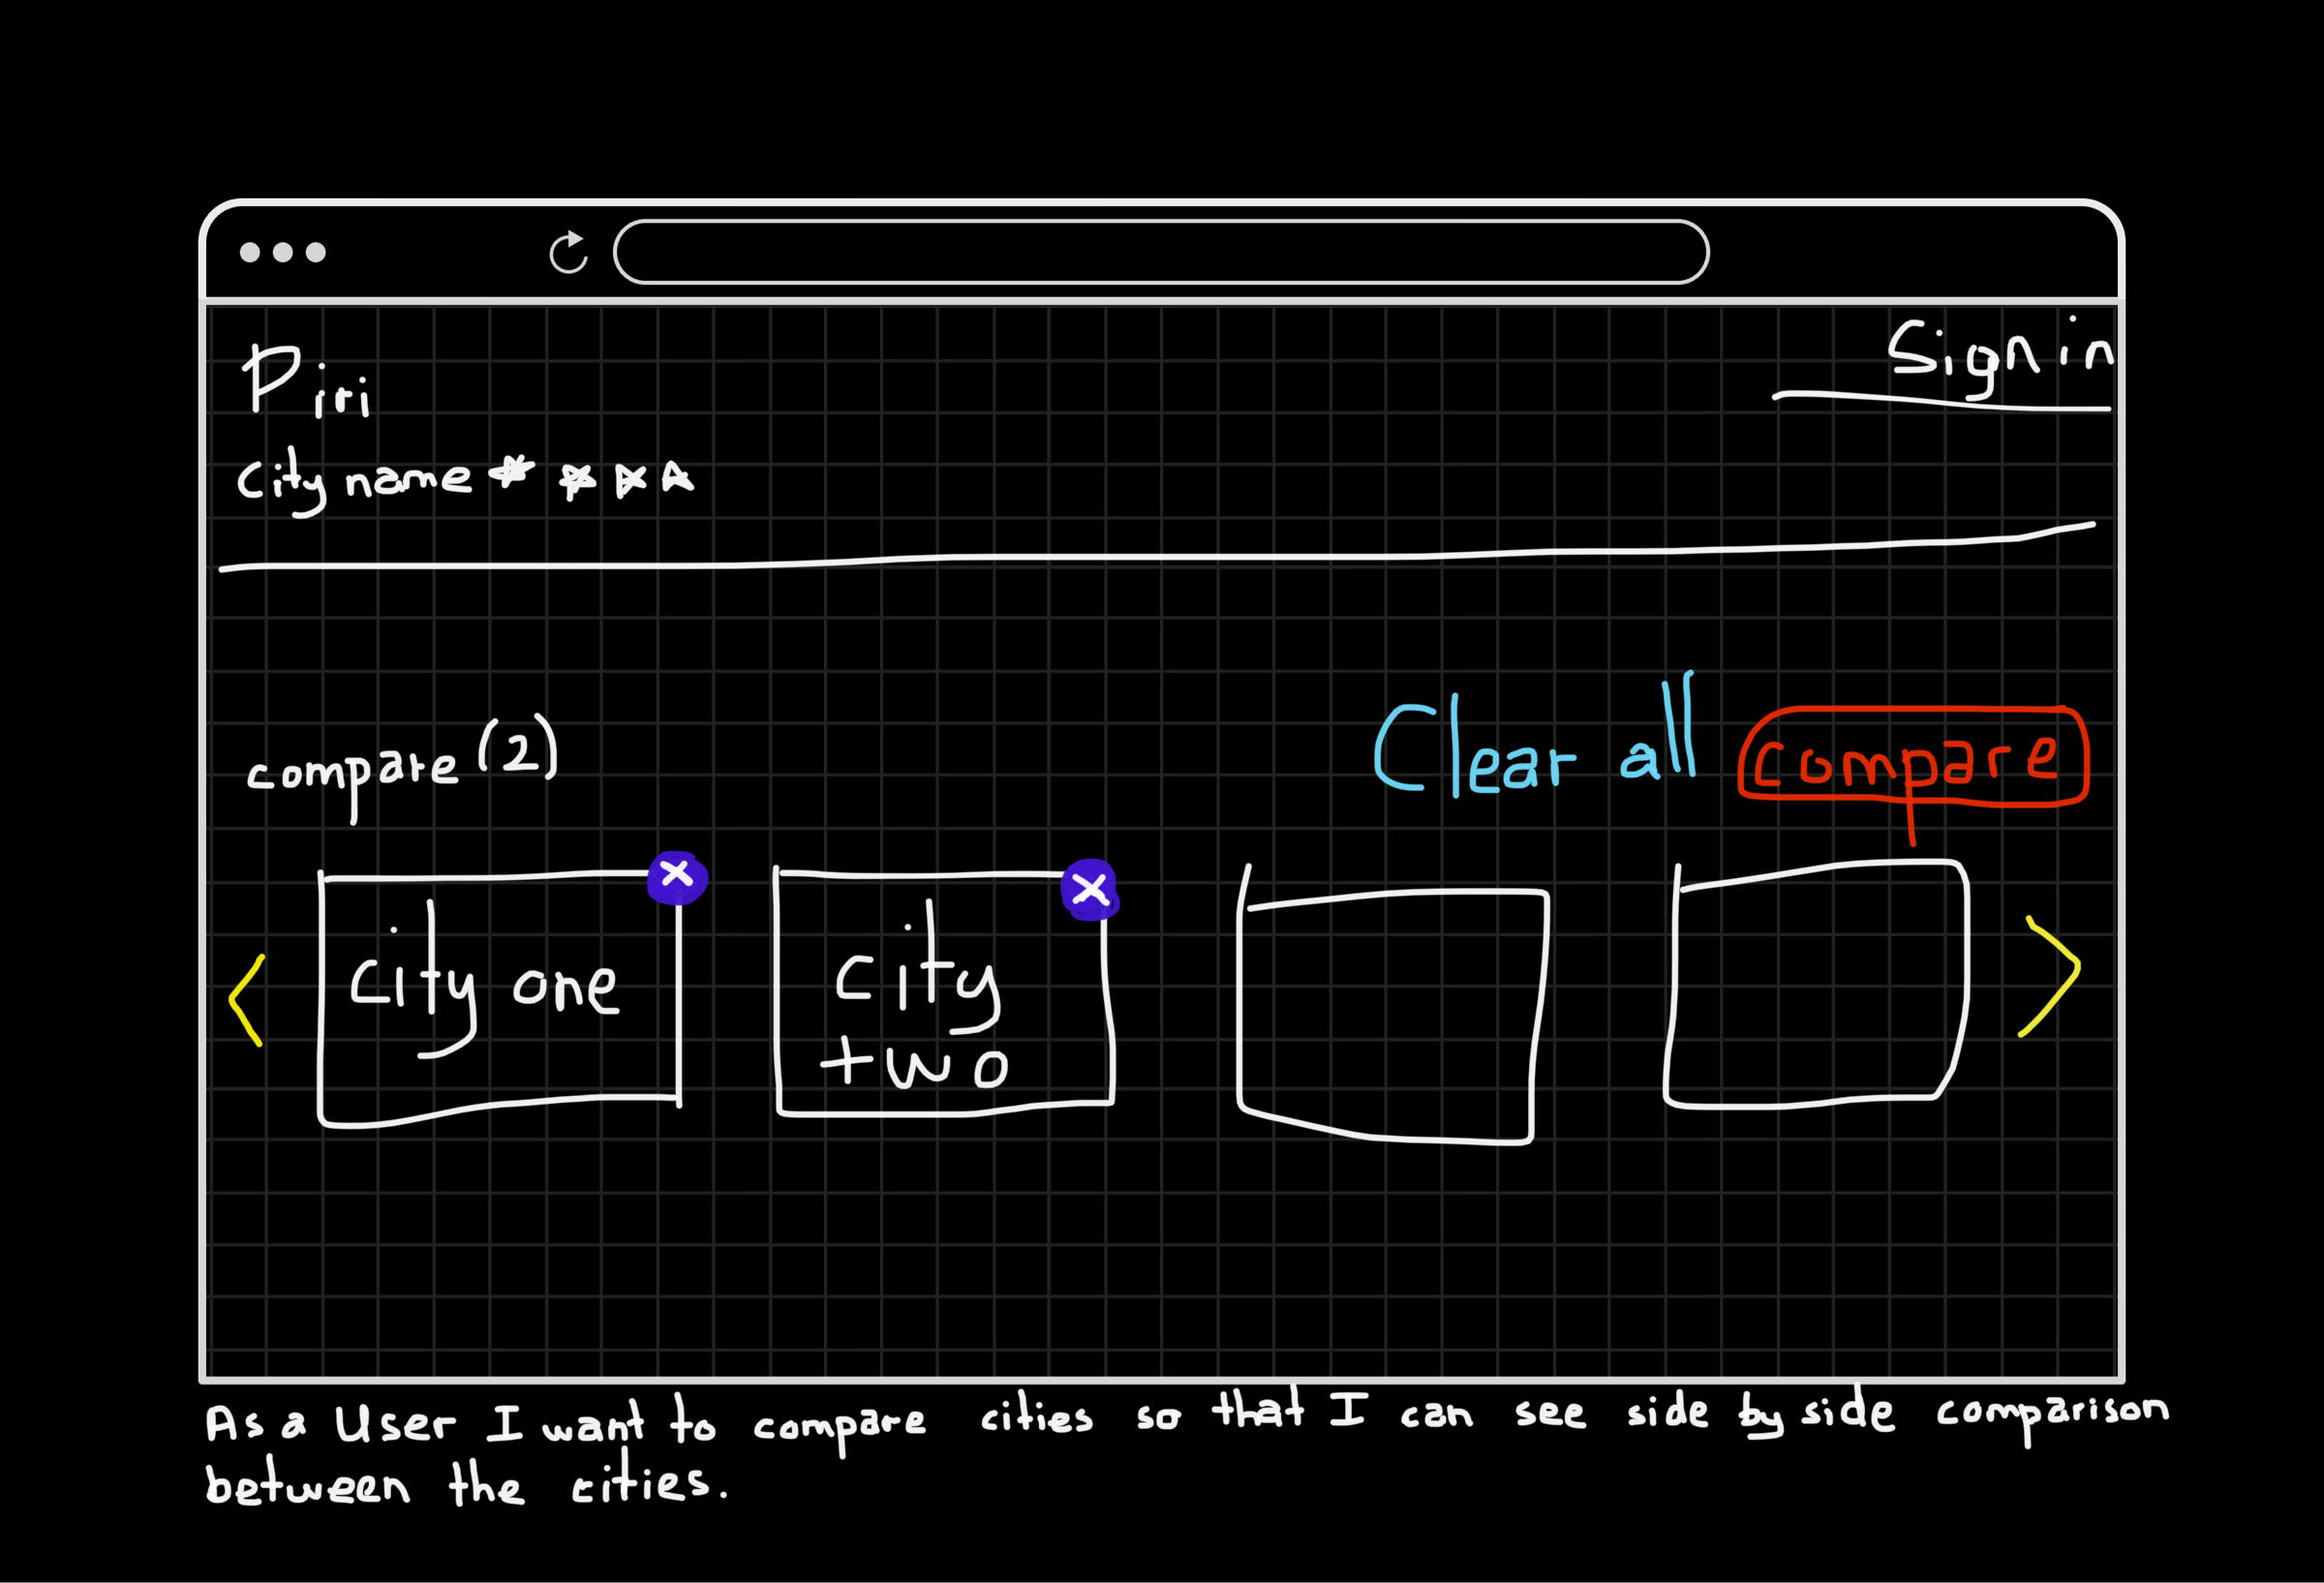 Piri
Sign in
City name
compare (2)
Clear all
compare
City one
City
two
As a User I want to compare cities so that I can see side by side comparison
between the cities.